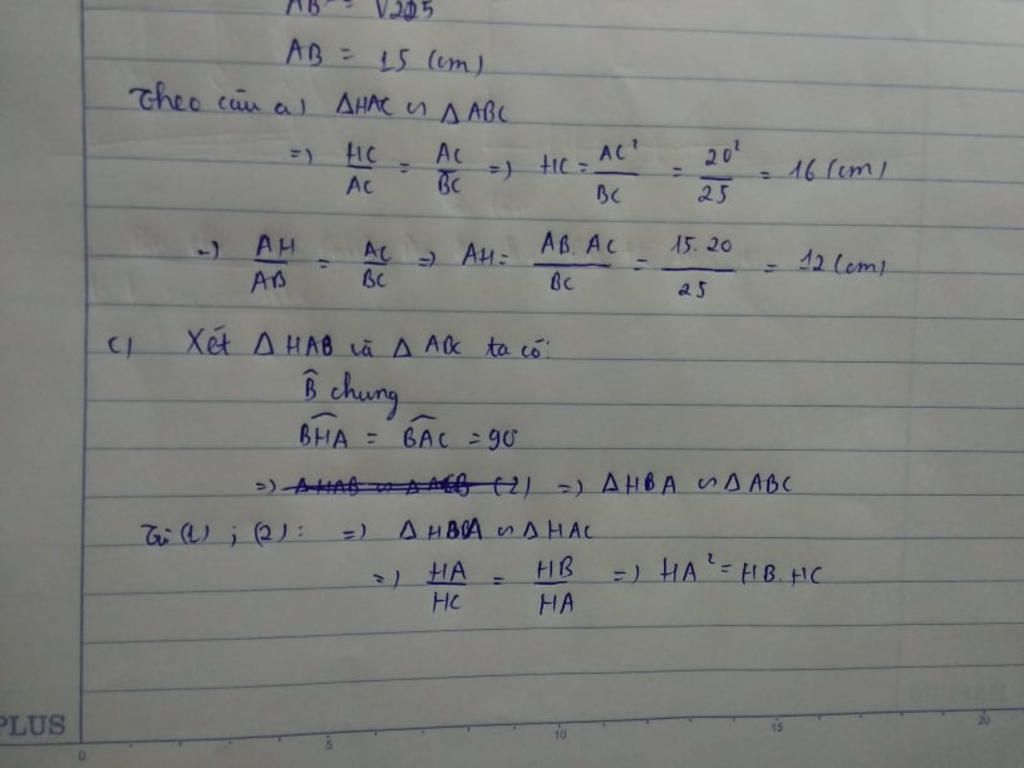 AB = √225
AB = 15 (cm)
Theo câu a) ΔHAC ∽ ΔABC
=) HC/AC = AC/BC =) HC = AC²/BC = 20²/25 = 16 (cm)
=) AH/AB = AC/BC =) AH = AB.AC/BC = 15.20/25 = 12 (cm)
c) Xét ΔHAB và ΔABC ta có:
B̂ chung
BHA = BAC = 90
=) (2) =) ΔHBA ∽ ΔABC
Từ (1) ; (2) : =) ΔHBA ∽ ΔHAC
=) HA/HC = HB/HA =) HA² = HB.HC
PLUS
0 5 10 15 20